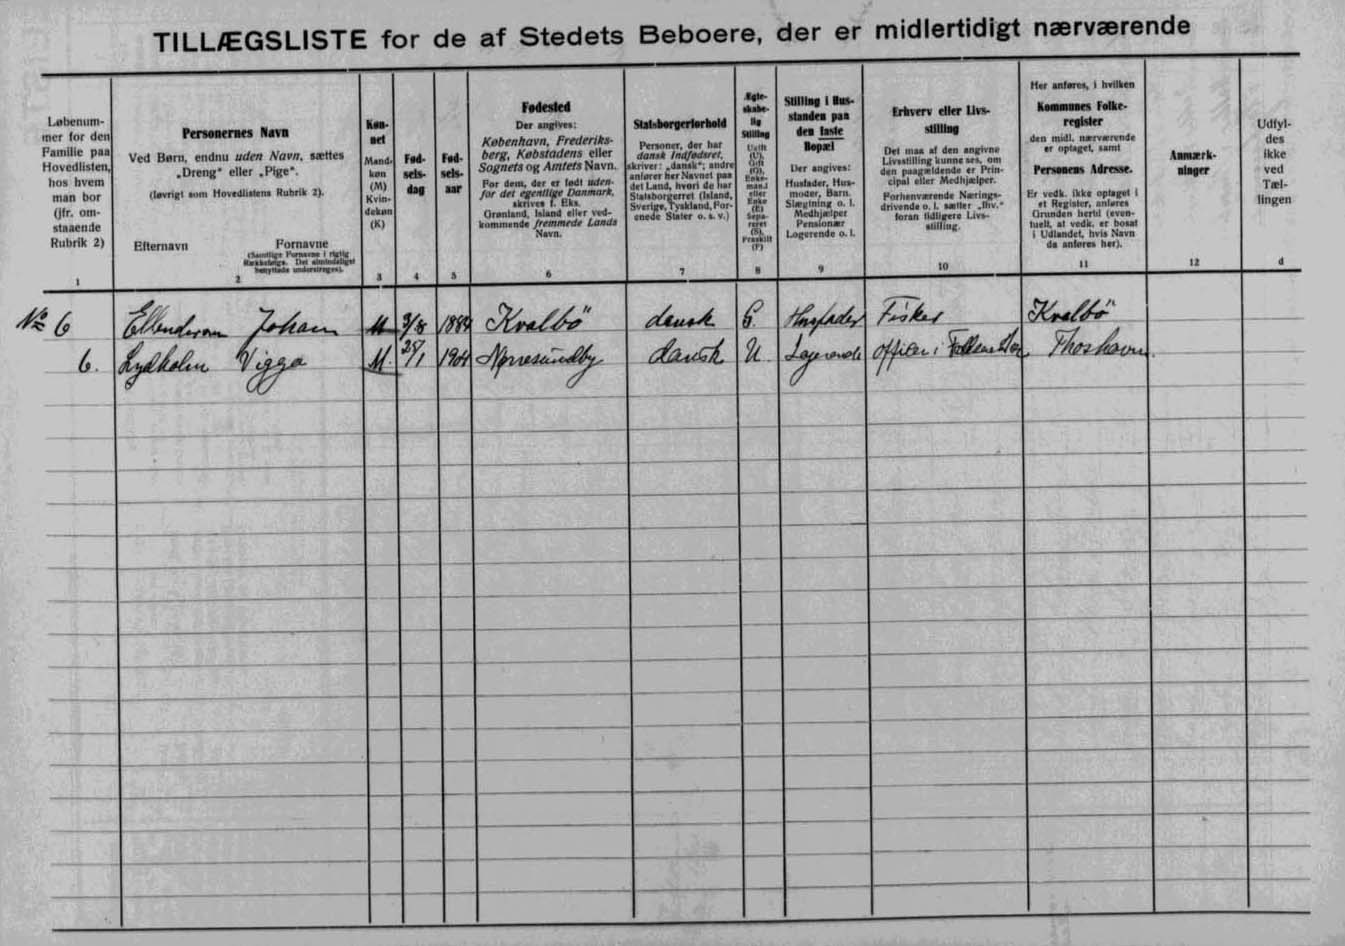 TILLÆGSLISTE for de af Stedets Beboere, der er midlertidigt nærværende
Løbenum-
mer for den
Familie paa
Hovedlisten,
hos hvem
man bor
(jfr. om-
staaende
Rubrik 2)
1
Personernes Navn
Ved Børn, endnu uden Navn, sættes
„Dreng“ eller „Pige“.
(Iøvrigt som Hovedlistens Rubrik 2).
Efternavn
Fornavne
(Samtlige Fornavne i rigtig
Rækkefølge. Det almindeligst
benyttede understreges).
2
Køn-
net
Mand-
køn
(M)
Kvin-
dekøn
(K)
3
Fød-
sels-
dag
4
Fød-
sels-
aar
5
Fødested
Der angives:
København, Frederiks-
berg, Købstadens eller
Sognets og Amtets Navn.
For dem, der er født uden-
for det egentlige Danmark,
skrives f. Eks.
Grønland, Island eller ved-
kommende fremmede Lands
Navn.
6
Statsborgerforhold
Personer, der har
dansk Indfødsret,
skriver: „dansk“; andre
anfører her Navnet paa
det Land, hvori de har
Statsborgerret (Island,
Sverige, Tyskland, For-
enede Stater o. s. v.)
7
Ægte-
skabe-
lig
Stilling
Ugift
(U),
Gift
(G),
Enke-
mand
eller
Enke
(E)
Sepa-
reret
(S),
Fraskilt
(F)
8
Stilling i Hus-
standen paa
den faste
Bopæl
Der angives:
Husfader, Hus-
moder, Barn,
Slægtning o. l.
Medhjælper
Pensionær
Logerende o. l.
9
Erhverv eller Livs-
stilling
Det maa af den angivne
Livsstilling kunne ses, om
den paagældende er Prin-
cipal eller Medhjælper.
Forhenværende Nærings-
drivende o. l. sætter „fhv.“
foran tidligere Livs-
stilling.
10
Her anføres, i hvilken
Kommunes Folke-
register
den midl. nærværende
er optaget, samt
Personens Adresse.
Er vedk. ikke optaget i
et Register, anføres
Grunden hertil (even-
tuelt, at vedk. er bosat
i Udlandet, hvis Navn
da anføres her).
11
Anmærk-
ninger
12
Udfyl-
des
ikke
ved
Tæl-
lingen
d
No 6 Ellendersen Johan M 3/8 1884 Kvalbö dansk G. Husfader Fisker Kvalbö
6. Lydholm Viggo M 25/1 1904 Nørresundby dansk U. Logerende officer i Thoshavn.